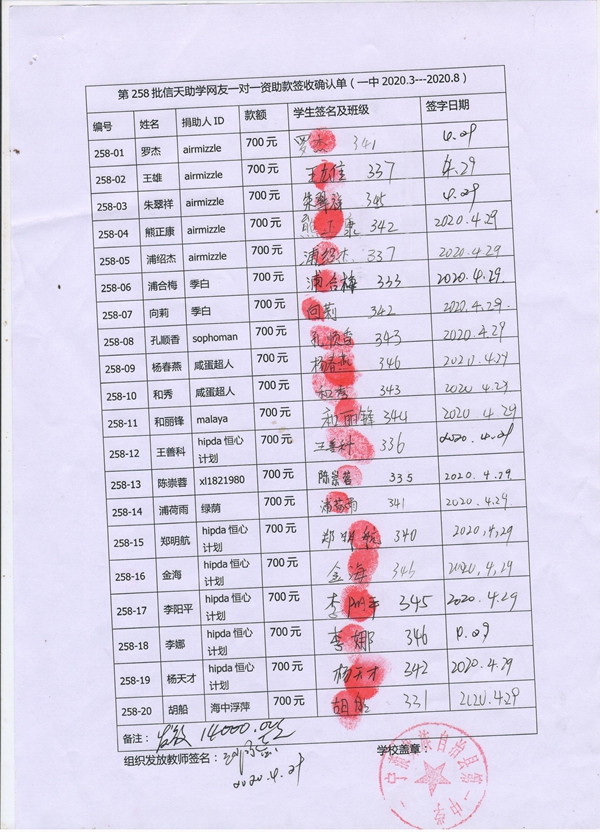 第 258 批信天助学网友一对一资助款签收确认单（一中 2020.3---2020.8）
编号 姓名 捐助人 ID 款额 学生签名及班级 签字日期
258-01 罗杰 airmizzle 700 元 罗杰 341 4.29
258-02 王雄 airmizzle 700 元 王雄 337 4.29
258-03 朱翠祥 airmizzle 700 元 朱翠祥 345 4.29
258-04 熊正康 airmizzle 700 元 熊正康 342 2020.4.29
258-05 浦绍杰 airmizzle 700 元 浦绍杰 337 2020.4.29
258-06 浦合梅 季白 700 元 浦合梅 333 2020.4.29
258-07 向莉 季白 700 元 向莉 342 2020.4.29.
258-08 孔顺香 sophoman 700 元 孔顺香 343 2020.4.29
258-09 杨春燕 咸蛋超人 700 元 杨春燕 346 2020.4.29
258-10 和秀 咸蛋超人 700 元 和秀 343 2020 4.29
258-11 和丽锋 malaya 700 元 和丽锋 344 2020 4.29
258-12 王善科 hipda 恒心 700 元 王善科 336 2020.4.29
计划
258-13 陈崇蓉 xl1821980 700 元 陈崇蓉 335 2020.4.29
258-14 浦荷雨 绿荫 700 元 浦荷雨 341 2020.4.29
258-15 郑明航 hipda 恒心 700 元 郑明航 340 2020,4,29
计划
258-16 金海 hipda 恒心 700 元 金海 346 2020,4,29
计划
258-17 李阳平 hipda 恒心 700 元 李阳平 345 2020.4.29
计划
258-18 李娜 hipda 恒心 700 元 李娜 346
计划
258-19 杨天才 hipda 恒心 700 元 杨天才 342 2020.4.29
计划
258-20 胡船 海中浮萍 700 元 胡船 331 2020.4.29
备注： 14000.00
组织发放教师签名： 学校盖章：
2020.4.29
自治县第一中学